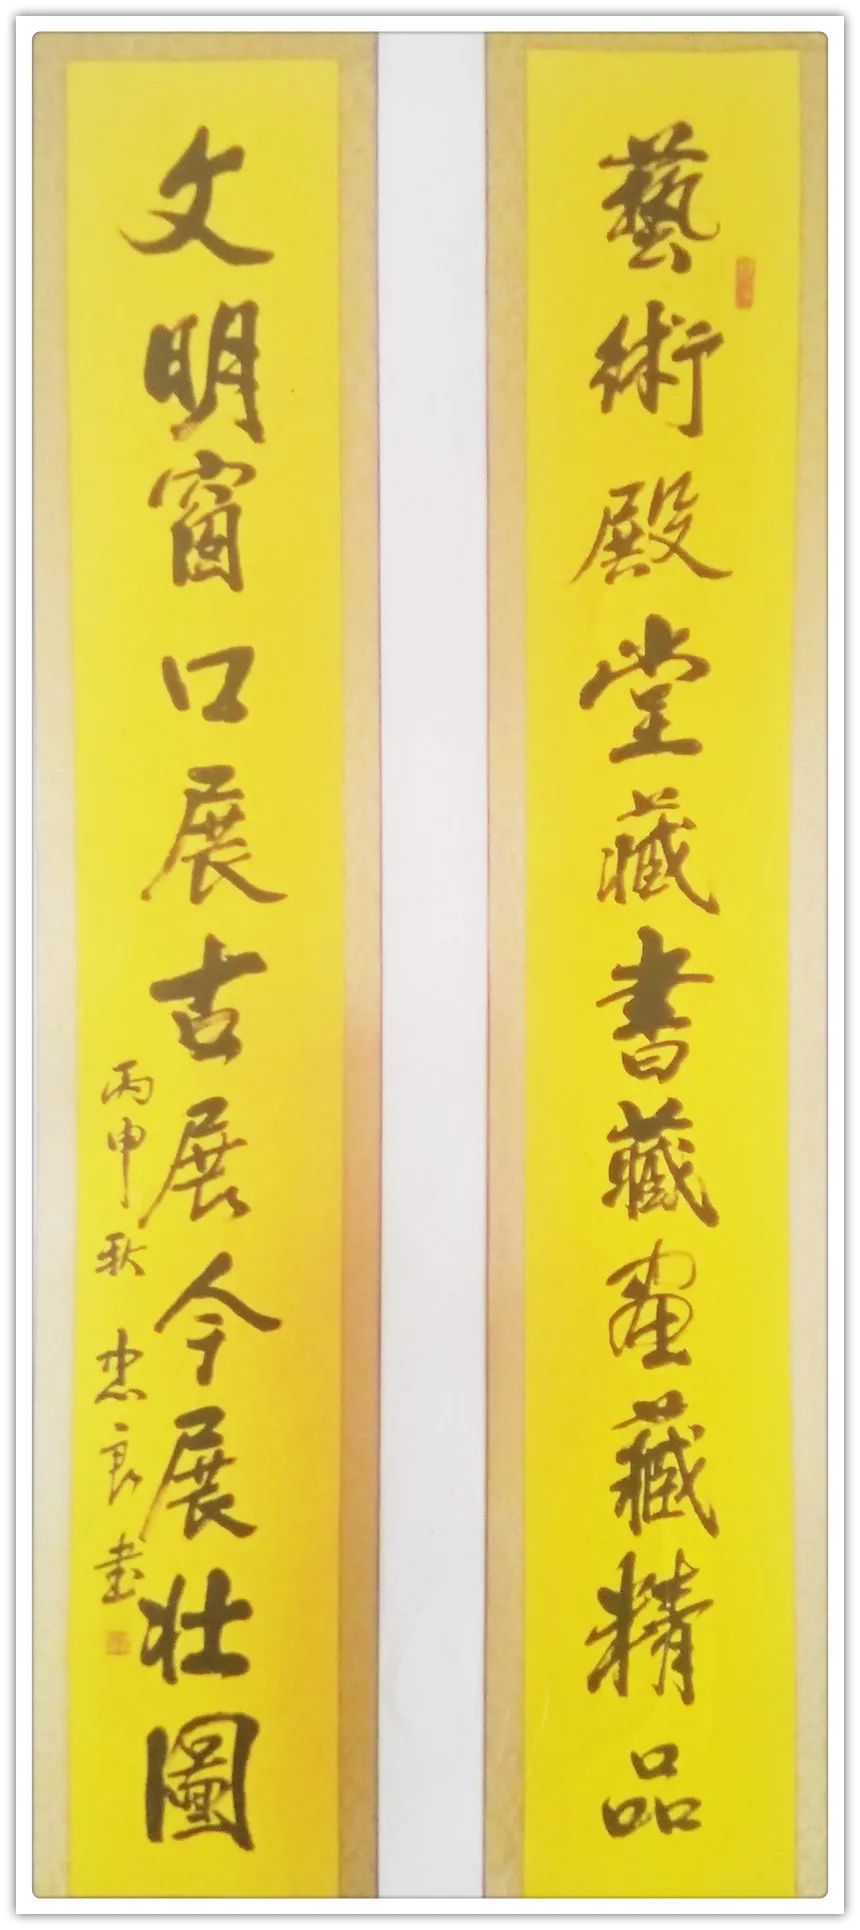 藝術殿堂藏書藏畫藏精品
文明窗口展古展今展壯圖
丙申秋 忠良書